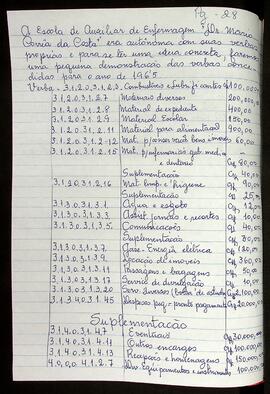 Pg - 28
A Escola de Auxiliar de Enfermagem "Dr. Mario
Corria da Costa" era autônoma com suas verbas
proprias e para se ter uma idéia concreta, faremos
uma pequena demonstração das verbas conce
didas para o ano de 1965
Verba - 3.1.2.0.3.1.2.3 Combustíveis e lubrif. 100.000,00
3.1.2.0.3.1.2.7 Materiais diversos 200.000,
3.1.2.0.3.1.2.8 Material de expediente 400.000,
3.1.2.0.3.1.2.9 Material Escolar 150.00
3.1.2.0.3.1.2.11 Material para alimentação 900.00
3.1.2.0.3.1.2.12 Mat. p/ cons. bens imoveis 60.00
3.1.2.0.3.1.2.15 Mat.
e dentario Cr$ 90.00
Suplementação Cr$ 40.00
3.1.2.0.3.1.2.16 Mat. limp. e higiene Cr$ 90.00
Suplementação Cr$
3.1.3.0.3.1.3.1 Agua e esgoto Cr$ 12.00
3.1.3.0.3.1.3.3 Assist. jornais e recortes Cr$ 10.00
3.1.3.0.3.1.3.5 Comunicações Cr$ 40.00
Suplementação Cr$
3.1.3.0.3.1.3.7 Energia elétrica Cr$ 120.00
3.1.3.0.3.1.3.9 Locação de imóveis Cr$ 360.00
3.1.3.0.3.1.3.11 Passagens e bagagens Cr$ 50.00
3.1.3.0.3.1.3.17 Serviço de divulgação Cr$ 10.00
3.1.3.0.3.1.3.20 Serv. diversos (bolsa de estudo) Cr$ 2.100.00
3.1.3.4.0.3.1.45 Despesas peq. pronto pagamento Cr$ 20.000.00
Suplementação
3.1.4.0.3.1.4.7 Eventuais Cr$ 30.000,00
3.1.4.0.3.1.4.11 Outros encargos Cr$ 100.000,00
3.1.4.0.3.1.4.13 Recepções e homenagens Cr$ 150.000,00
4.0.0.0.4.1.2.7 Div. Equipamentos e instrumentos 100.000,00